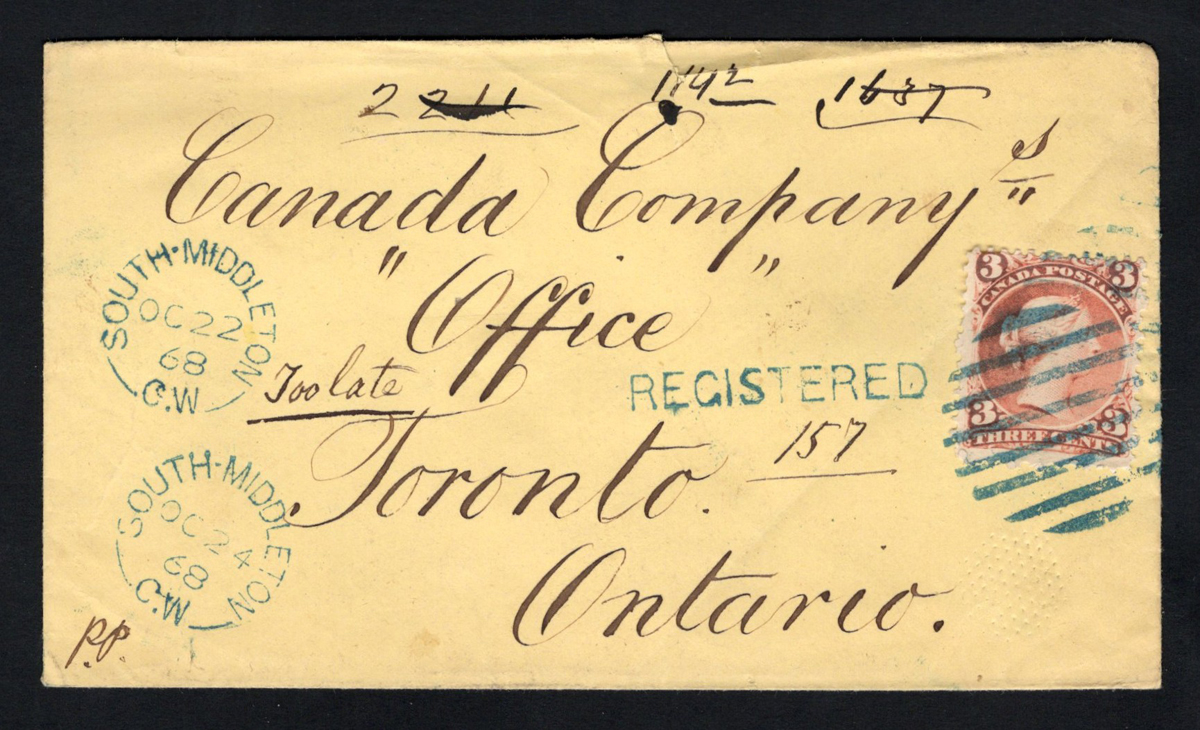 2211 1142 1637
Canada Company's
"Office"
Too late
Toronto.
Ontario.
REGISTERED
157
SOUTH-MIDDLETON
OC 22
68
C.W
SOUTH-MIDDLETON
OC 24
68
C.W
P.P.
3 3
CANADA POSTAGE
3 3
THREE CENTS